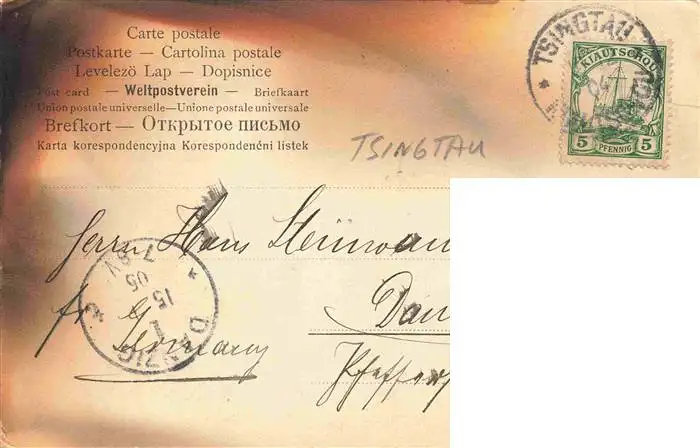 Carte postale
Postkarte — Cartolina postale
Levelező Lap — Dopisnice
Post card — Weltpostverein — Briefkaart
Union postale universelle — Unione postale universale
Brefkort — Открытое письмо
Karta korespondencyjna Korespondenční listek
TSINGTAU
TSINGTAU
KIAUTSCHOU
5 PFENNIG 5
Herrn Hans
Dan
Germany
DANZIG
15
05
7-8V